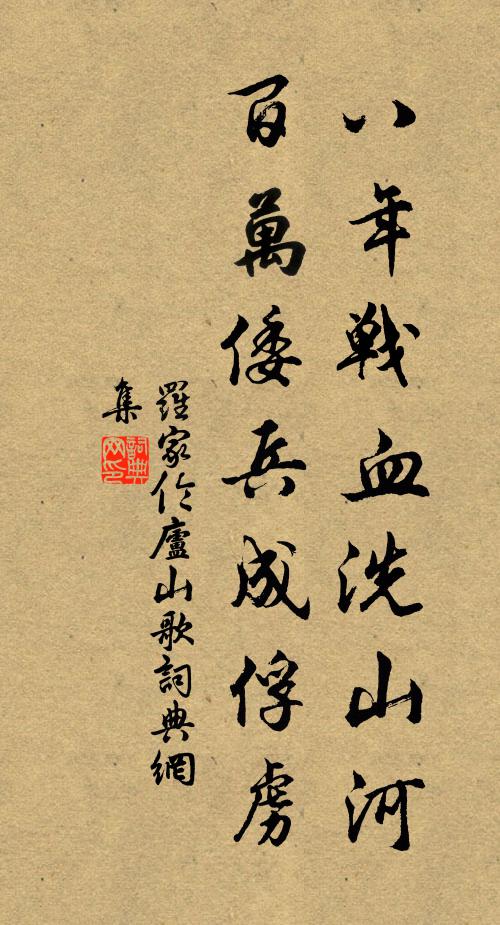 八年戰血洗山河
百萬倭兵成俘虜
羅家伦廬山歌詞典網
集
詞典
网印